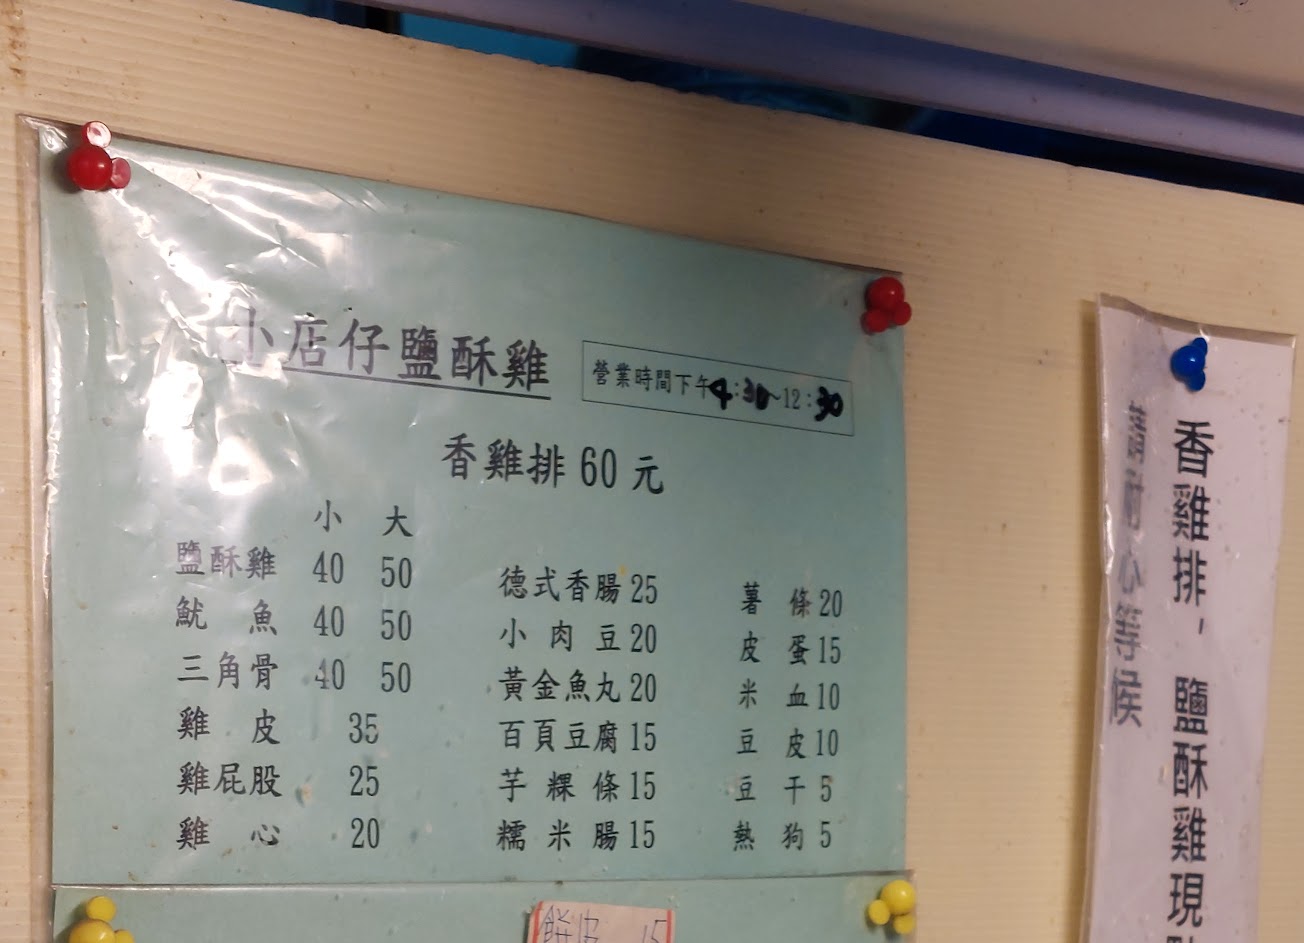 小店仔鹽酥雞
營業時間下午4:30~12:30
香雞排60元
小 大
鹽酥雞 40 50
魷魚 40 50
三角骨 40 50
雞皮 35
雞屁股 25
雞心 20
德式香腸25
小肉豆20
黃金魚丸20
百頁豆腐15
芋粿條15
糯米腸15
薯條20
皮蛋15
米血10
豆皮10
豆干5
熱狗5
餅皮 15
香雞排,鹽酥雞現
請耐心等候